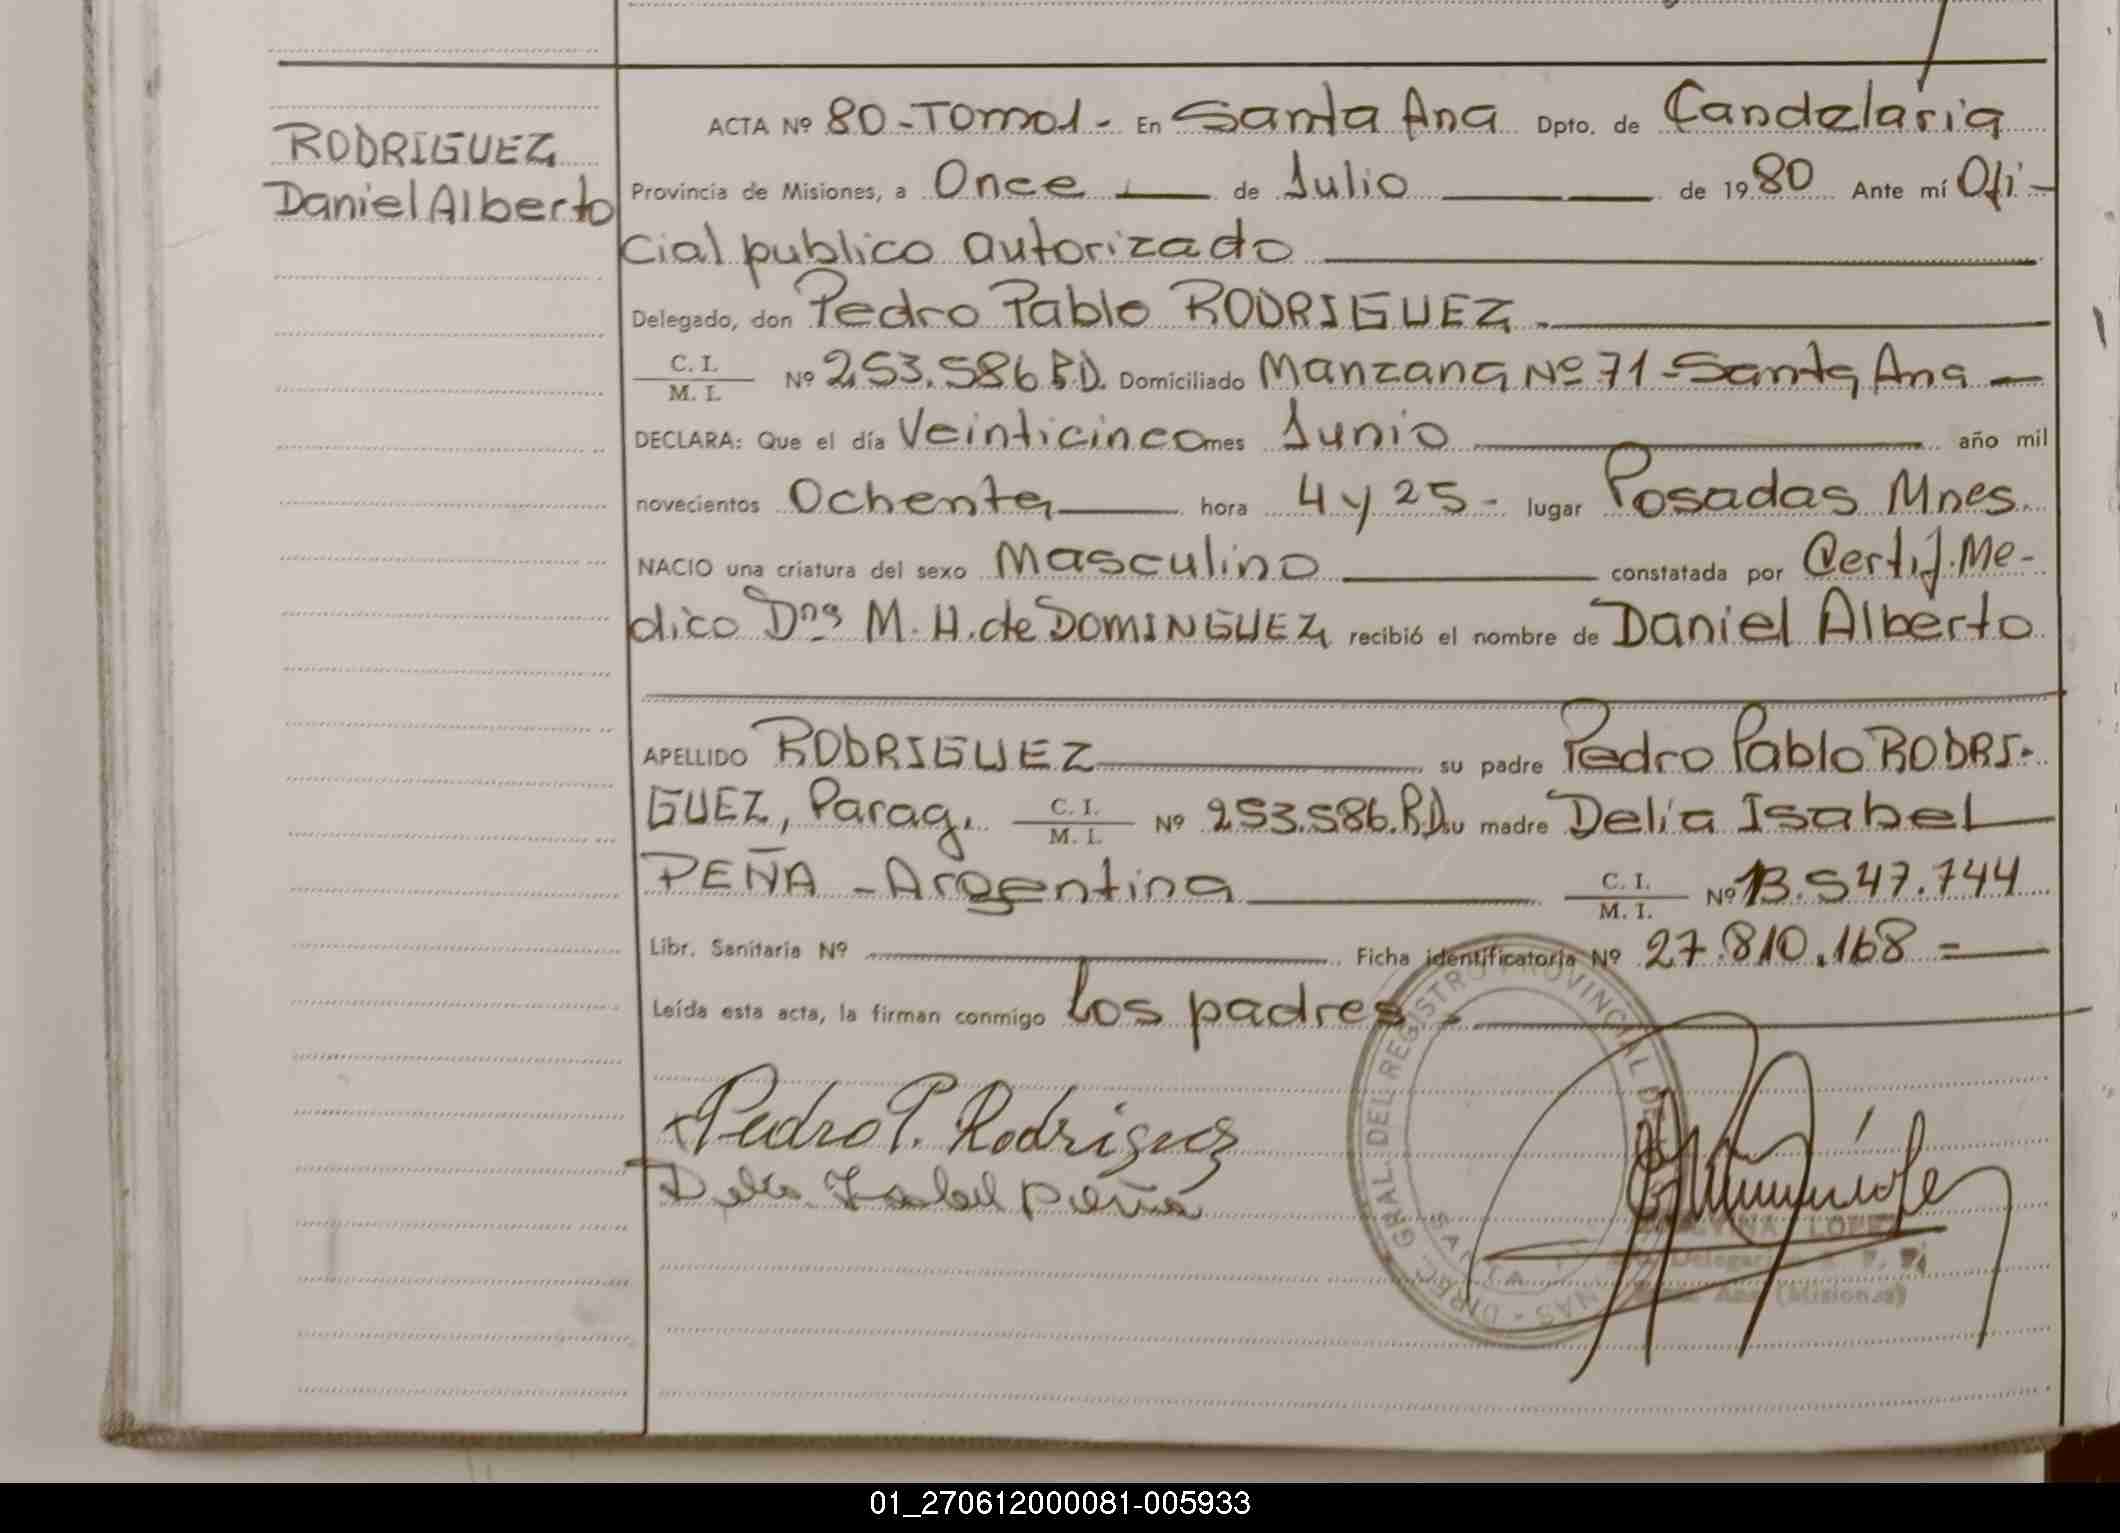 RODRIGUEZ
Daniel Alberto
ACTA Nº 80-Tomo1- En Santa Ana Dpto. de Candelaria
Provincia de Misiones, a Once de Julio de 1980 Ante mí Ofi-
cial publico autorizado
Delegado, don Pedro Pablo RODRIGUEZ.
C. I.
M. I. Nº 253.586 P.D. Domiciliado Manzana Nº 71-Santa Ana
DECLARA: Que el día Veinticinco mes Junio año mil
novecientos Ochenta hora 4 y 25- lugar Posadas Mnes.
NACIO una criatura del sexo Masculino constatada por Certif. Me-
dico Dña M. H. de DOMINGUEZ recibió el nombre de Daniel Alberto
APELLIDO RODRIGUEZ su padre Pedro Pablo RODRI-
GUEZ, Parag. C. I.
M. I. Nº 253.586.P.D. su madre Delia Isabel
PEÑA - Argentina C. I.
M. I. Nº 13.547.744
Libr. Sanitaria Nº Ficha identificatoria Nº 27.810.168 =
Leída esta acta, la firman conmigo los padres.
Pedro P. Rodriguez
Delia Isabel Peña
DIREC. GRAL. DEL REGISTRO PROVINCIAL DE
LOPEZ
Delegación
Ana (Misiones)
01_270612000081-005933